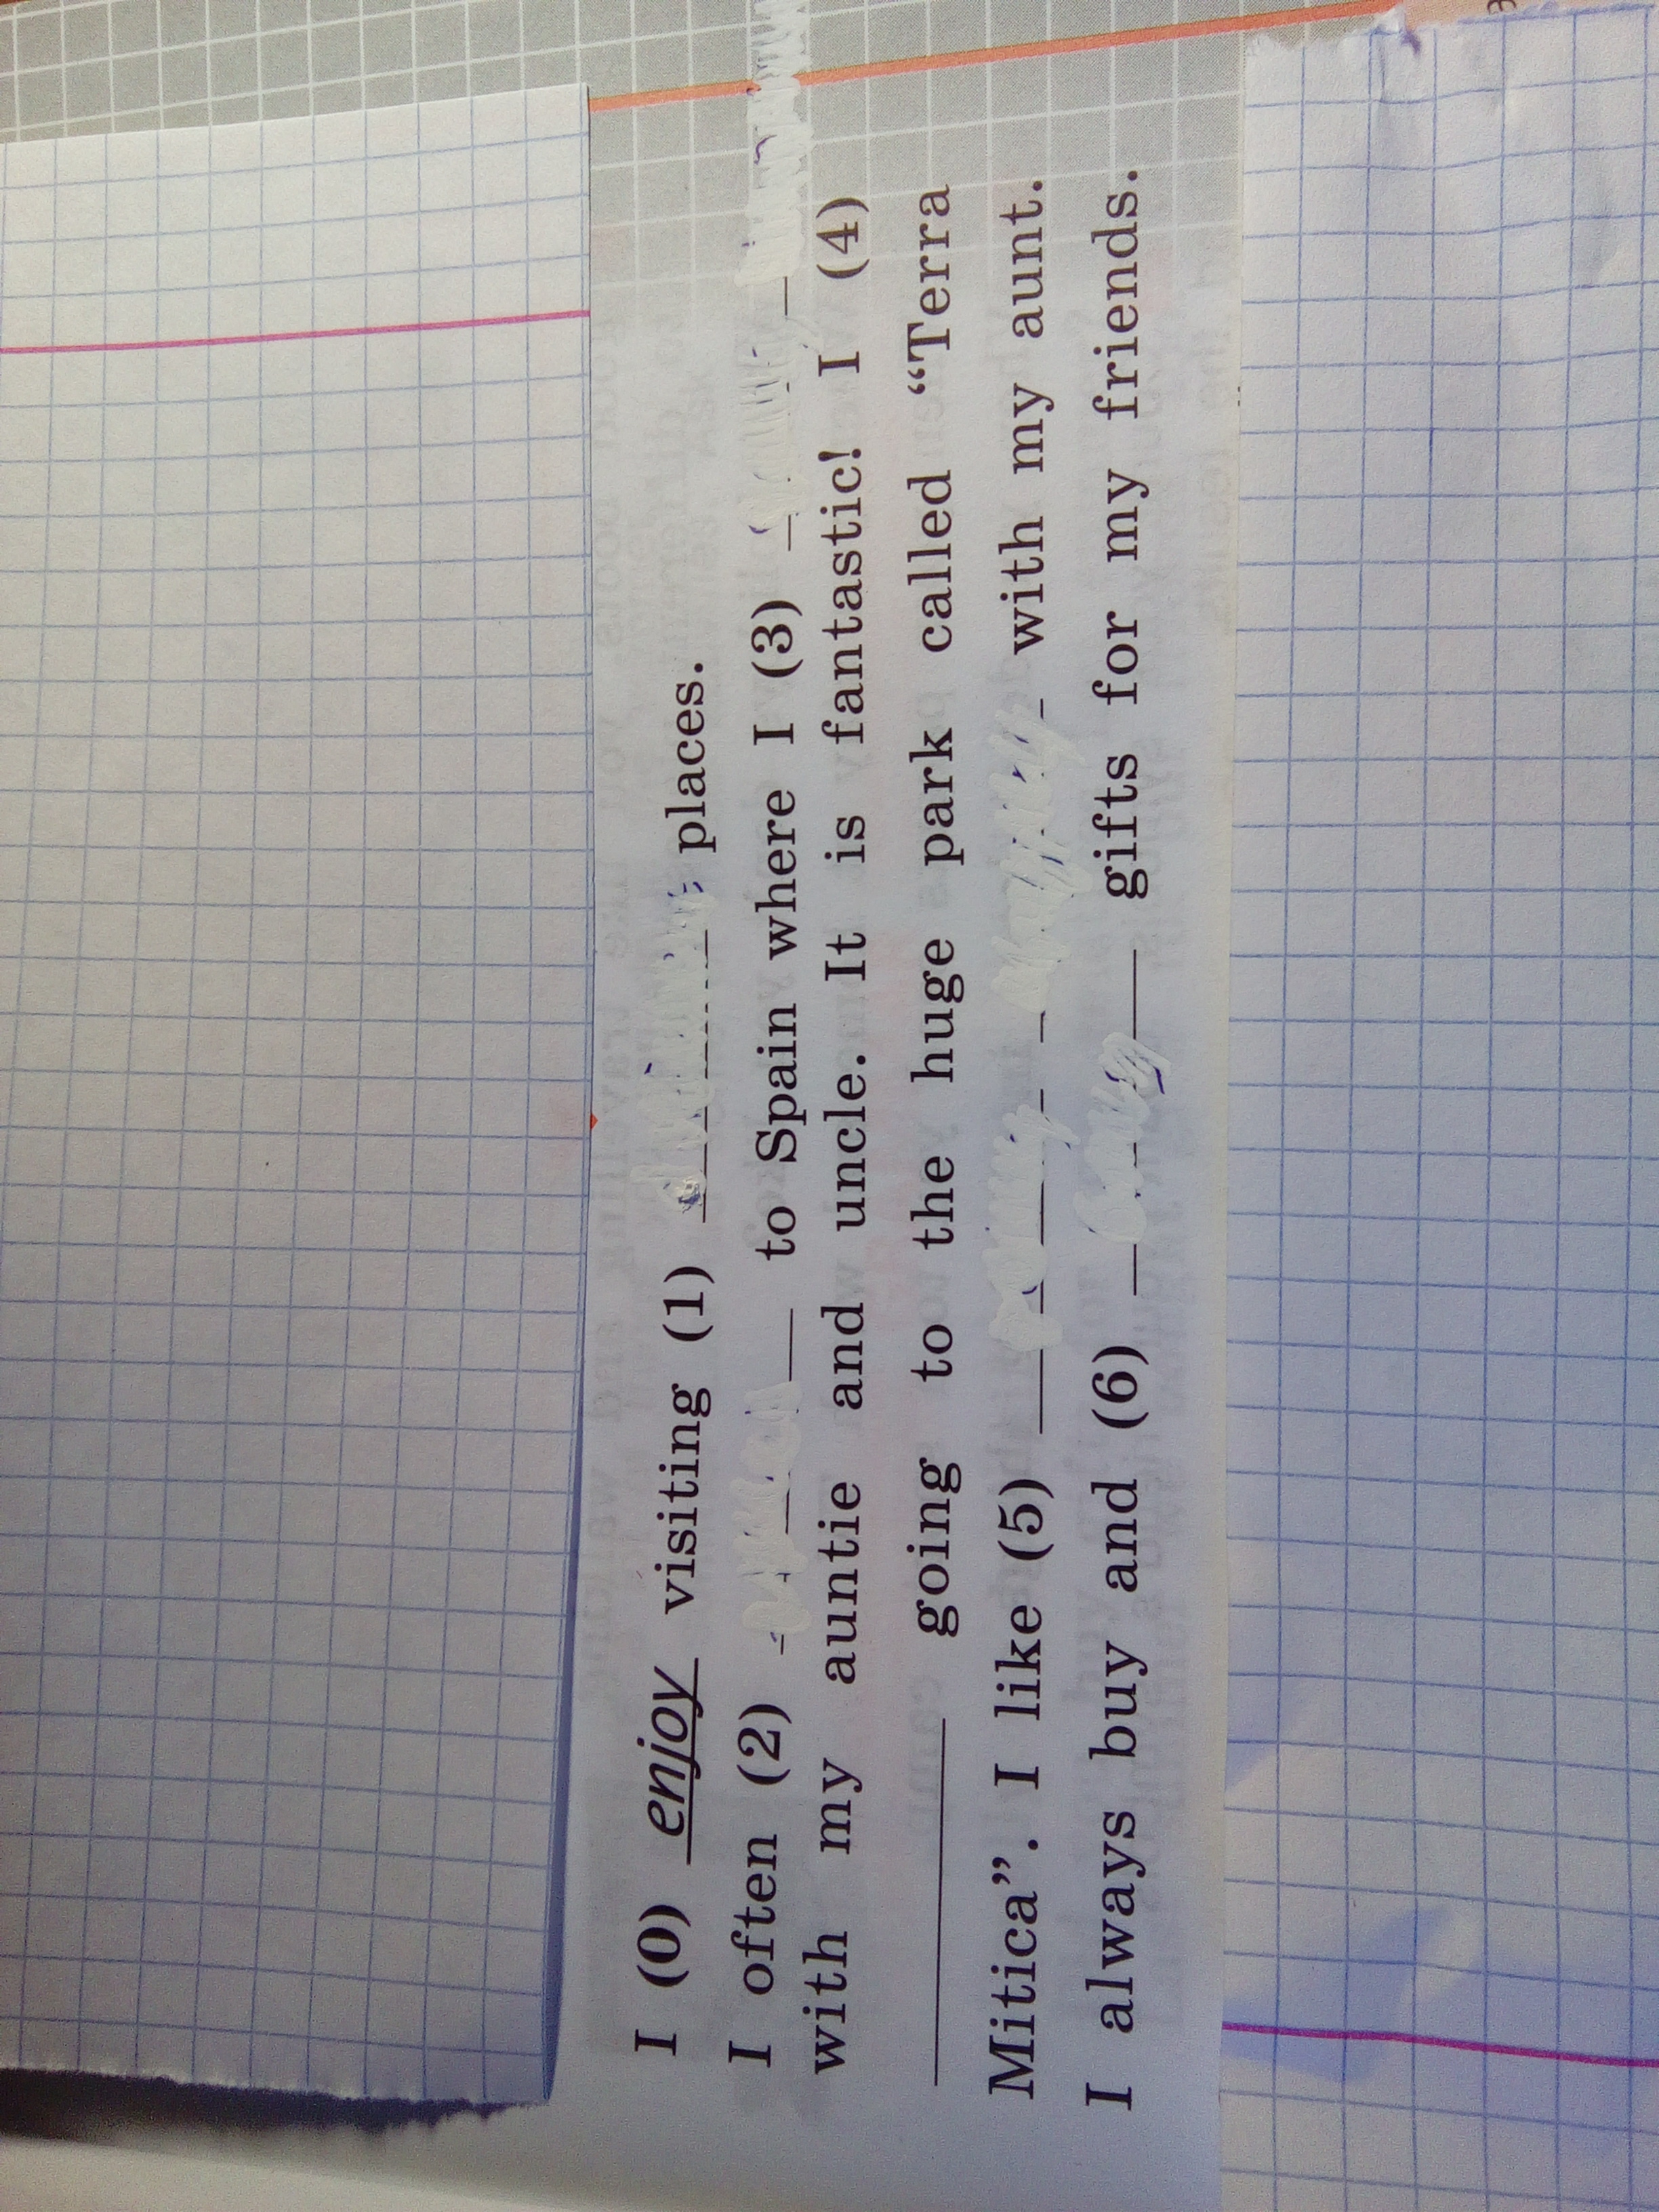 I (0) enjoy visiting (1) places.
I often (2) to Spain where I (3)
with my auntie and uncle. It is fantastic! I (4)
going to the huge park called “Terra
Mitica”. I like (5) with my aunt.
I always buy and (6) gifts for my friends.